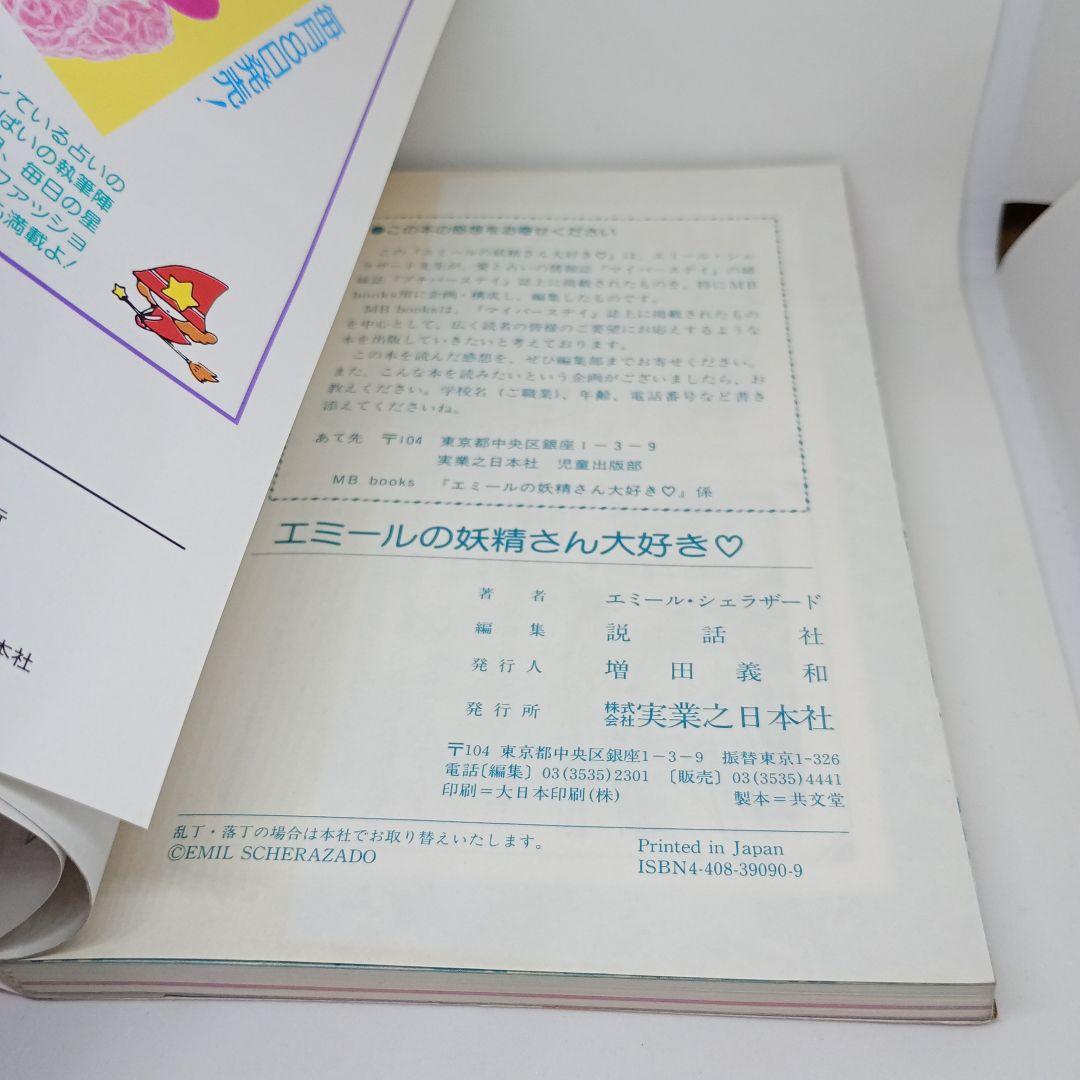 毎月8日発売!
している占いの
ぱいの執筆陣
、毎日の星
ファッショ
満載よ!
本社
●この本の感想をお寄せください
この『エミールの妖精さん大好き♡』は、エミール・シェ
ラザード先生が、愛と占いの情報誌『マイバースデイ』の姉
妹誌『プチバースデイ』誌上に掲載されたものを、特にMB
books用に企画・構成し、編集したものです。
MB booksは、『マイバースデイ』誌上に掲載されたもの
を中心として、広く読者の皆様のご要望にお応えするような
本を出版していきたいと考えております。
この本を読んだ感想を、ぜひ編集部までお寄せください。
また、こんな本を読みたいという企画がございましたら、お
教えください。学校名(ご職業)、年齢、電話番号など書き
添えてくださいね。
あて先 〒104 東京都中央区銀座1-3-9
実業之日本社 児童出版部
MB books 『エミールの妖精さん大好き♡』係
エミールの妖精さん大好き♡
著者 エミール・シェラザード
編集 説話社
発行人 増田義和
発行所 株式会社実業之日本社
〒104 東京都中央区銀座1-3-9 振替東京1-326
電話〔編集〕03(3535)2301 〔販売〕03(3535)4441
印刷=大日本印刷(株) 製本=共文堂
乱丁・落丁の場合は本社でお取り替えいたします。
©EMIL SCHERAZADO
Printed in Japan
ISBN4-408-39090-9